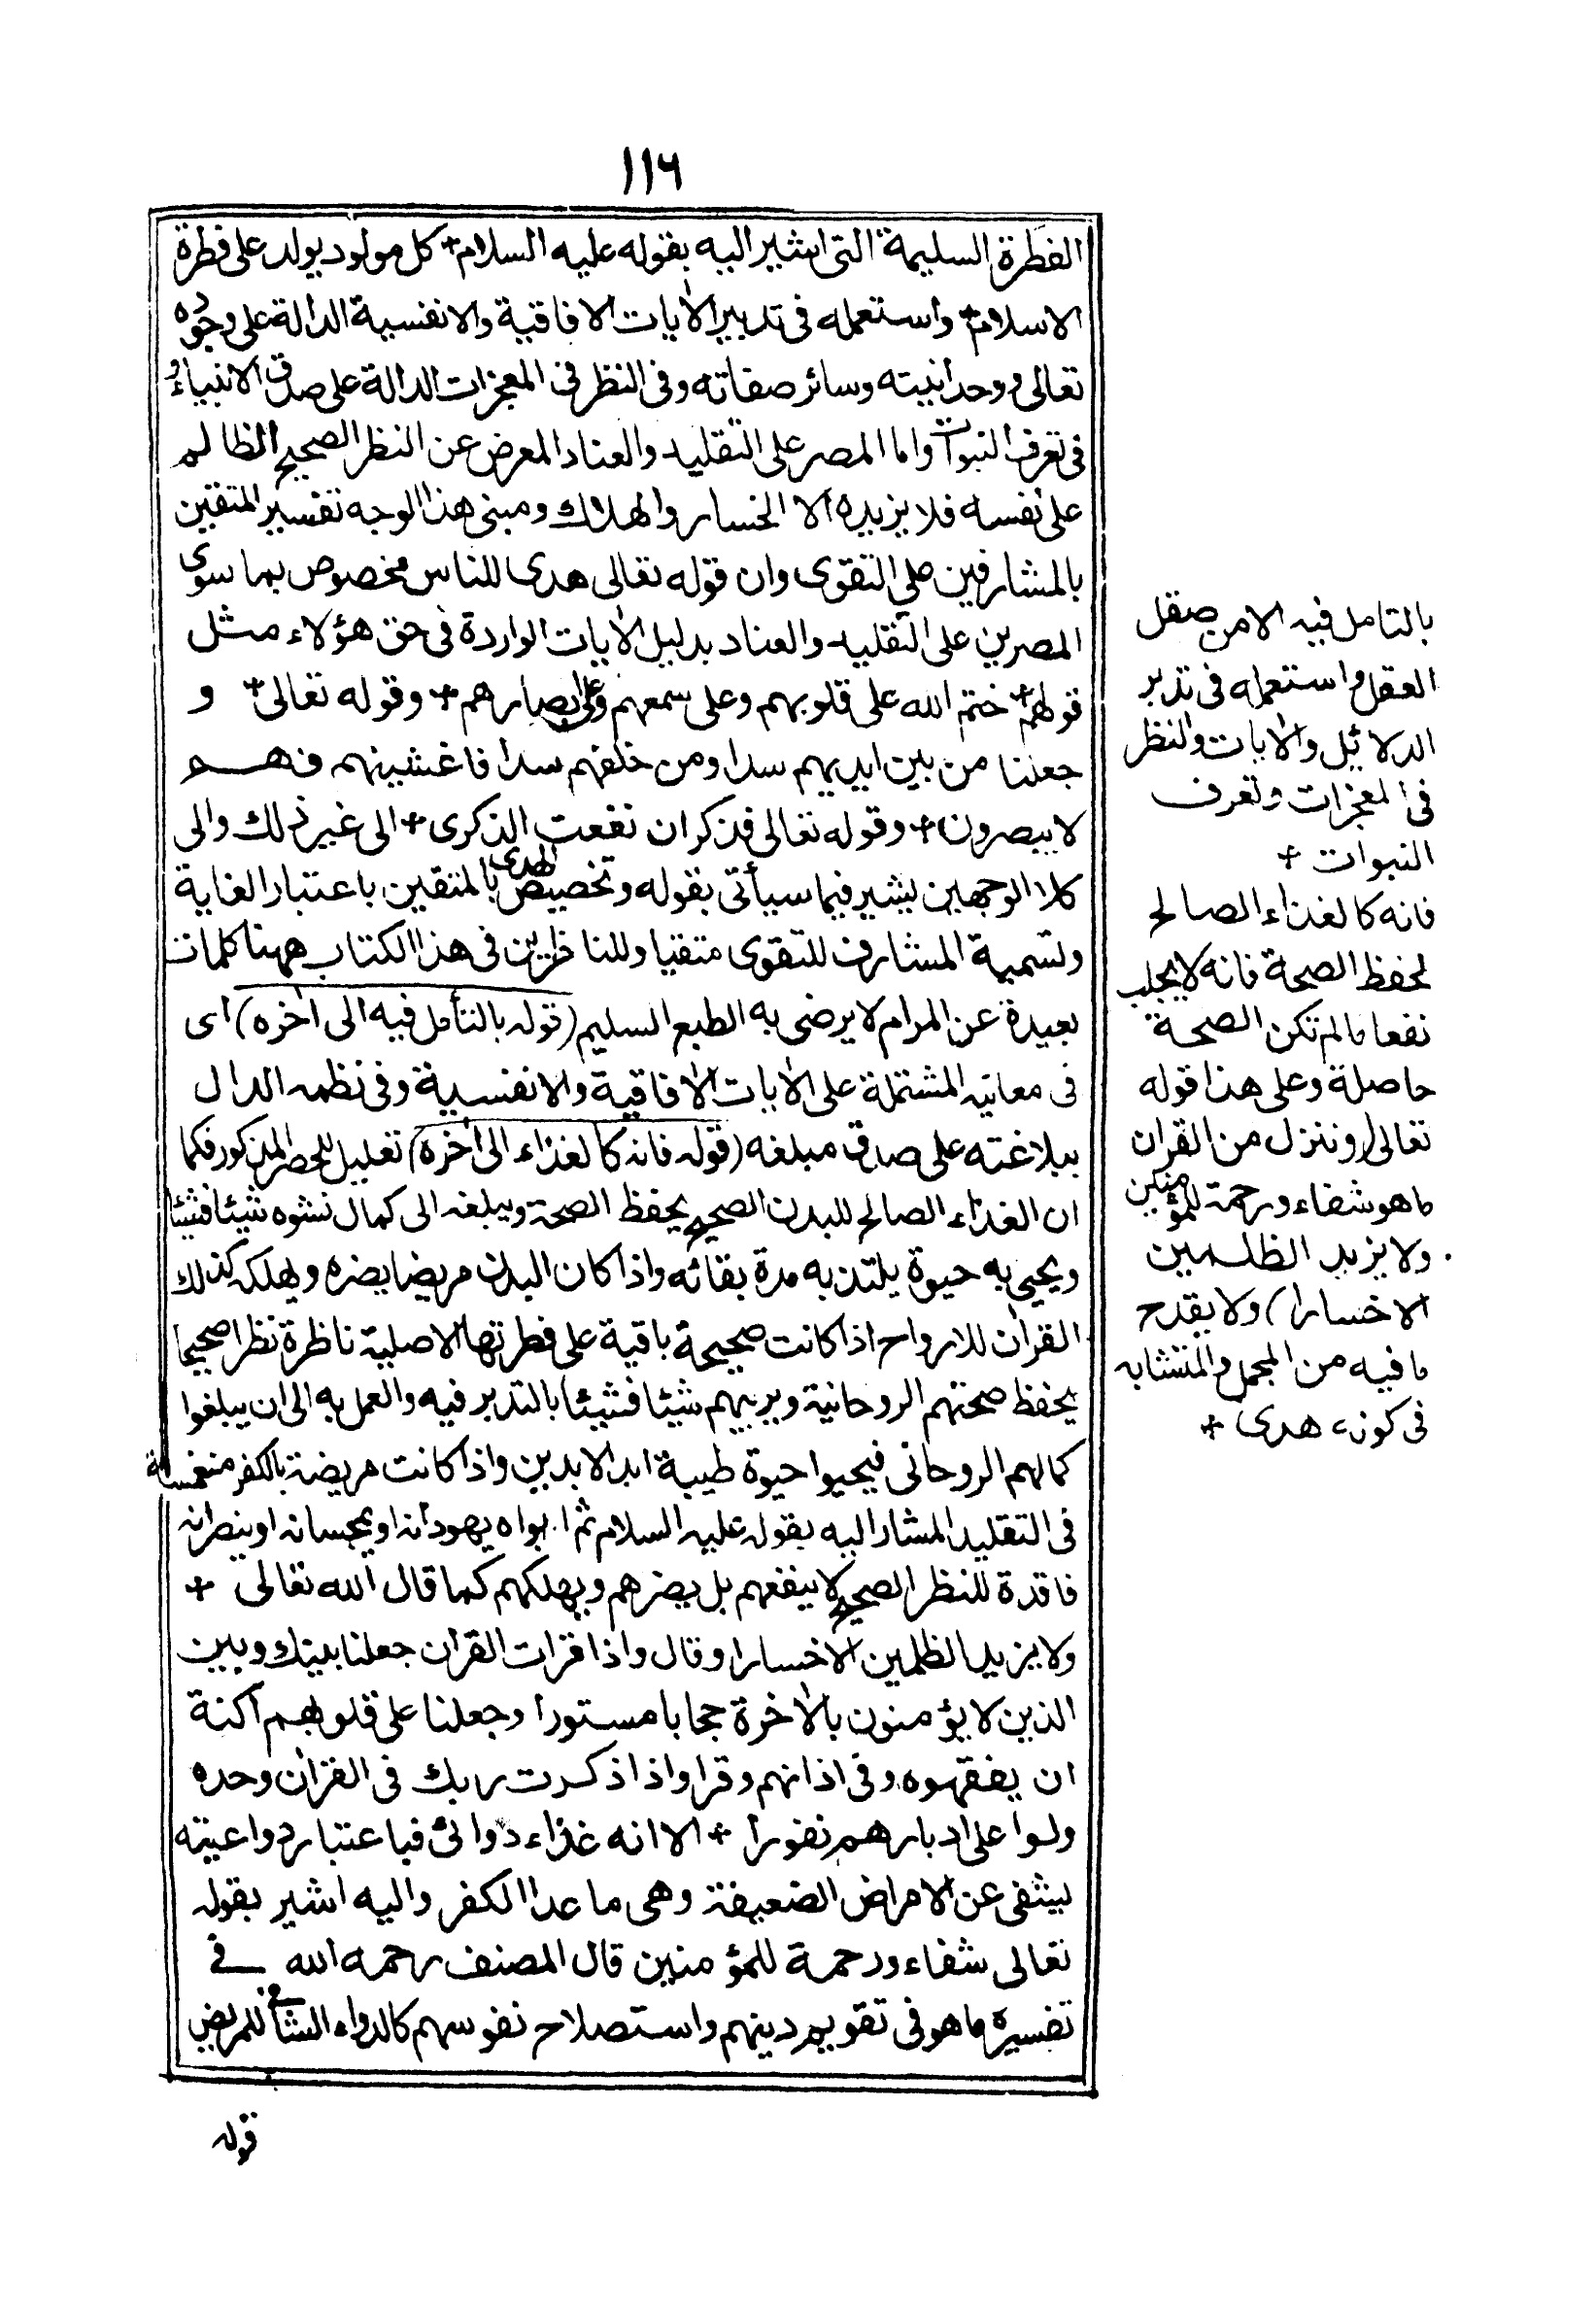 ١١٦
الفطرة السليمة التى اشير اليه بقوله عليه السلام + كل مولود يولد على فطرة
الاسلام + واستعمله فى تدبير الأيات الافاقية والانفسية الدالة على وجوده
تعالى ووحدانيته وسائر صفاته وفى النظر فى المعجزات الدالة على صدق الانبياء و
فى تعرف النبوات واما المصر على التقليد والعناد المعرض عن النظر الصحيح الظالم
على نفسه فلا يزيده الا الخسار والهلاك ومبنى هذا الوجه تفسير المتقين
بالمشارفين على التقوى وان قوله تعالى هدى للناس مخصوص بما سوى
المصرين على التقليد والعناد بدليل الأيات الواردة فى حق هؤلاء مثل
قولهم + ختم الله على قلوبهم وعلى سمعهم وعلى ابصارهم + وقوله تعالى + و
جعلنا من بين ايديهم سدا ومن خلفهم سدا فاغشينهم فهم
لا يبصرون + وقوله تعالى فذكر ان نفعت الذكرى + الى غير ذلك والى
كلا الوجهين يشير فيما سيأتى بقوله وتخصيص الهدى بالمتقين باعتبار الغاية
وتسمية المشارف للتقوى متقيا وللناظرين فى هذا الكتاب ههنا كلمات
بعيدة عن المرام لا يرضى به الطبع السليم (قوله بالتأمل فيه الى أخره) اى
فى معانيه المشتملة على الأيات الأفاقية والانفسية وفى نظمه الدال
ببلاغته على صدق مبلغه (قوله فانه كالغذاء الى أخره) تعليل للحصر المذكور فكما
ان الغذاء الصالح للبدن الصحيح يحفظ الصحة ويبلغه الى كمال نشوه شيئا فشيئا
ويحيى به حيوة يلتذ به مدة بقائه واذا كان البدن مريضا يضره ويهلكه كذلك
القرأن للارواح اذا كانت صحيحة باقية على فطرتها الاصلية ناظرة نظرا صحيحا
يحفظ صحتهم الروحانية ويربيهم شيئا فشيئا بالتدبر فيه والعمل به الى ان يبلغوا
كمالهم الروحانى فيحيوا حيوة طيبة ابد الابدين واذا كانت مريضة بالكفر منغمسة
فى التقليد المشار اليه بقوله عليه السلام ثم ابواه يهودانه او يمجسانه او ينصرانه
فاقدة للنظر الصحيح لا ينفعهم بل يضرهم ويهلكهم كما قال الله تعالى +
ولا يزيد الظلمين الا خسارا وقال واذا قرات القرأن جعلنا بينك وبين
الذين لا يؤمنون بالأخرة حجابا مستورا وجعلنا على قلوبهم اكنة
ان يفقهوه وفى اذانهم وقرا واذا ذكرت ربك فى القرأن وحده
ولوا على ادبارهم نفورا + الا انه غذاء دوائى فباعتبار دواعيته
يشفى عن الامراض الضعيفة وهى ما عدا الكفر واليه اشير بقوله
تعالى شفاء ورحمة للمؤمنين قال المصنف رحمه الله فى
تفسيره ما هو فى تقويم دينهم واستصلاح نفوسهم كالدواء الشافى للمريض
قوله
بالتامل فيه الا من صقل
العقل واستعمله فى تدبر
الدلائل والأيات والنظر
فى المعجزات وتعرف
النبوات +
فانه كالغذاء الصالح
لحفظ الصحة فانه لا يجلب
نفعا ما لم تكن الصحة
حاصلة وعلى هذا قوله
تعالى (وننزل من القران
ما هو شفاء ورحمة للمؤمنين
ولا يزيد الظلمين
الا خسارا) ولا يقدح
ما فيه من المجمل والمتشابه
فى كونه هدى +